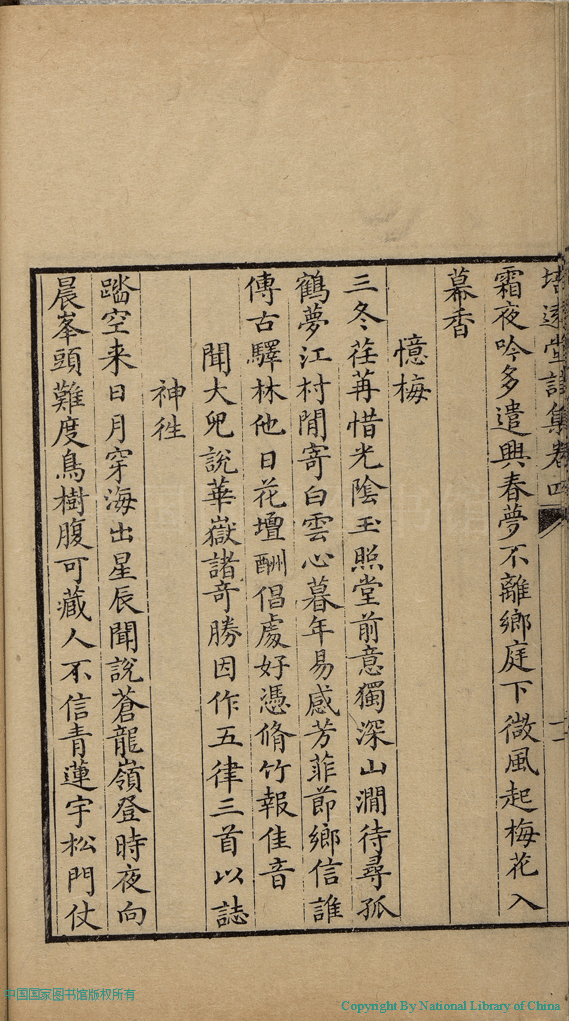 堂詩集卷四
霜夜吟多遣興春夢不離鄉庭下微風起梅花入
幕香
憶梅
三冬荏苒惜光陰玉照堂前意獨深山澗待尋孤
鶴夢江村閒寄白雲心暮年易感芳菲節鄉信誰
傳古驛林他日花壇酬倡處好憑脩竹報佳音
聞大兒說華嶽諸奇勝因作五律三首以誌
神徃
踏空来日月穿海出星辰聞說蒼龍嶺登時夜向
晨峯頭難度鳥樹腹可藏人不信青蓮宇松門仗
中国国家图书馆版权所有
Copyright By National Library of China